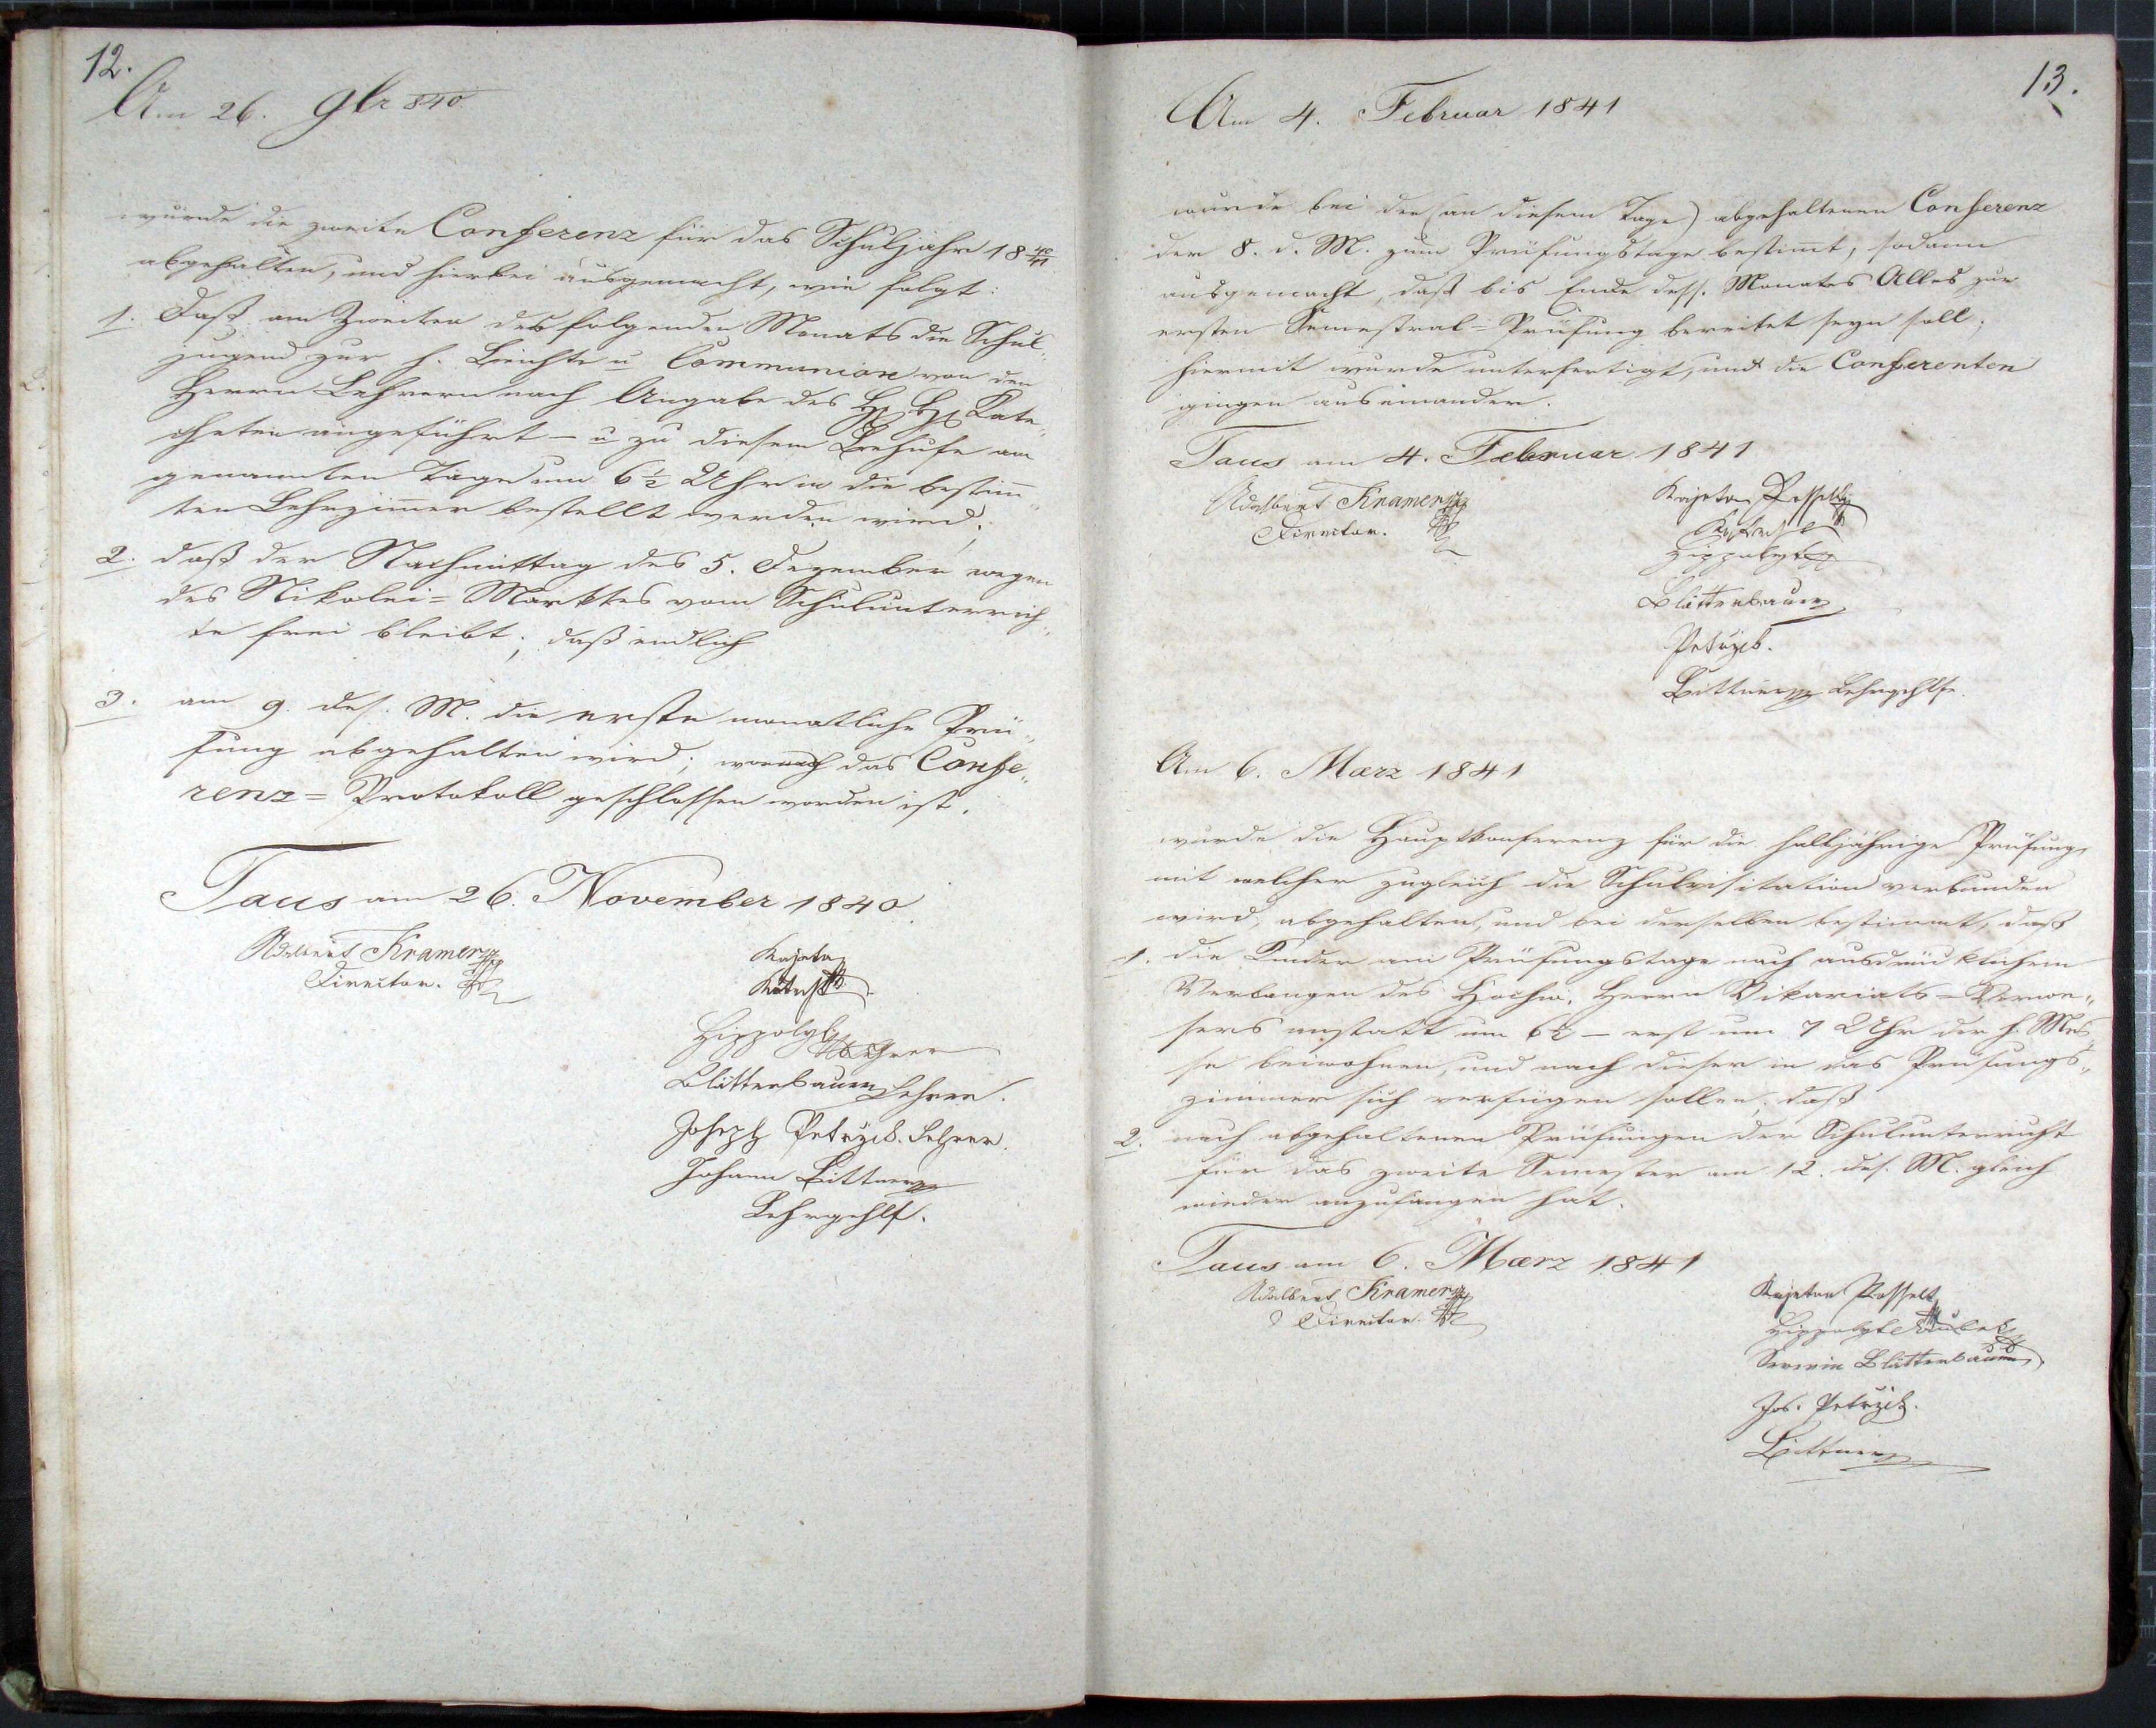 12.
Am 26. 9br 840
wurde die zweite Conferenz für das Schuljahr 18 40/41
abgehalten, und hierbei ausgemacht, wie folgt:
1. Daß am Zweiten des folgenden Monats die Schul„
jugend zur h. Beichte u Communion von den
Herrn Lehrern nach Angabe des H H Kate„
cheten angeführt – u zu diesem Behufe am
genannten Tage um 6 1/2 Uhr in die bestim̅„
ten Lehrzim̅er bestellt werden wird;
2. daß der Nachmittag des 5. Dezember wegen
des Nikolai = Marktes vom Schulunterrich„
te frei bleibt; daß endlich
3. am 9. des. M. die erste monatliche Prü„
fung abgehalten wird; wonach das Confe„
renz = Protokoll geschlossen worden ist.
Taus am 26. November 1840.
Adalbert Kramer
Director.
Kajetan
Katech
Hippolyt
Lehrer
Blättenbauer Lehrer.
Joseph Petržik. Lehrer.
Johann Bittner
Lehrgehlf.
13.
Am 4. Februar 1841
wurde bei der (an diesem Tage) abgehaltenen Conferenz
der 8. d. M. zum Prüfungstage bestim̅t, sodann
ausgemacht, daß bis Ende dess. Monates Alles zur
ersten Semestral = Prüfung bereitet seyn soll;
hiermit wurde unterfertigt, und die Conferenten
gingen auseinander.
Taus am 4. Februar 1841
Adalbert Kramer
Director.
Kajetan Posselt
Katechet
Hippolyt
Blättenbauer
Petržik.
Bittner Lehrgehlfe.
Am 6. Maerz 1841
wurde die Hauptkonferenz für die halbjährige Prüfung,
mit welcher zugleich die Schulvisitation verbunden
wird, abgehalten, und bei derselben bestimmt, daß
1. die Kinder am Prüfungstage nach ausdrücklichem
Verlangen des Hochw. Herrn Vikariats = Verwe„
sers anstatt um 6 1/2 – erst um 7 Uhr der h. Mes„
se beiwohnen, und nach dieser in das Prüfungs„
zimmer sich verfügen sollen; daß
2. nach abgehaltenen Prüfungen der Schulunterricht
für das zweite Semester am 12. des. M. gleich
wieder anzufangen hat.
Taus am 6. Maerz 1841
Adalbert Kramer
Director.
Kajetan Posselt
Hippolyt
Severin Blättenbauer
Jos. Petržik.
Bittner